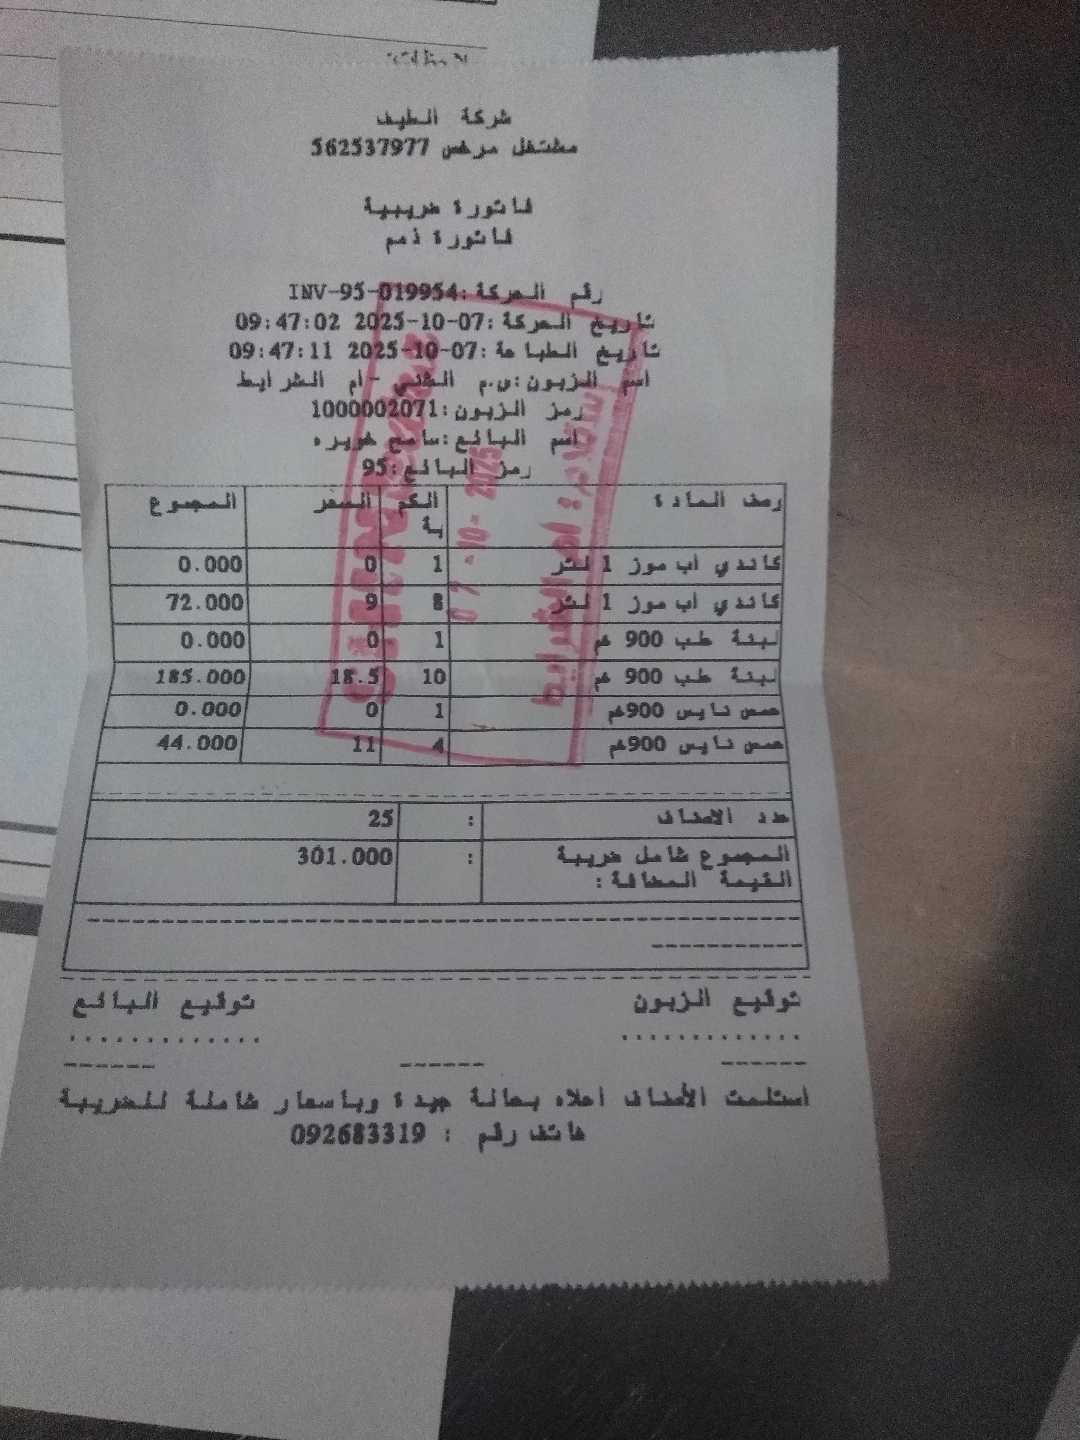 شركة الطيف
مشتغل مرخص 562537977
فاتورة ضريبية
فاتورة ذمم
رقم الحركة:INV-95-019954
تاريخ الحركة:07-10-2025 09:47:02
تاريخ الطباعة:07-10-2025 09:47:11
اسم الزبون:س.م الشني -ام الشرايط
رمز الزبون:1000002071
اسم البائع:سامح هريره
رمز البائع:95
وصف المادة الكمية السعر المجموع
كاندي أب موز 1 لتر 1 0 0.000
كاندي أب موز 1 لتر 8 9 72.000
لبنة طب 900 غم 1 0 0.000
لبنة طب 900 غم 10 18.5 185.000
حمص نايس 900غم 1 0 0.000
حمص نايس 900غم 4 11 44.000
عدد الأصناف : 25
المجموع شامل ضريبة : 301.000
القيمة المضافة:
توقيع الزبون توقيع البائع
استلمت الأصناف أعلاه بحالة جيدة وبأسعار شاملة للضريبة
هاتف رقم : 092683319
07 -10- 2025
استلام: ام الشرايط